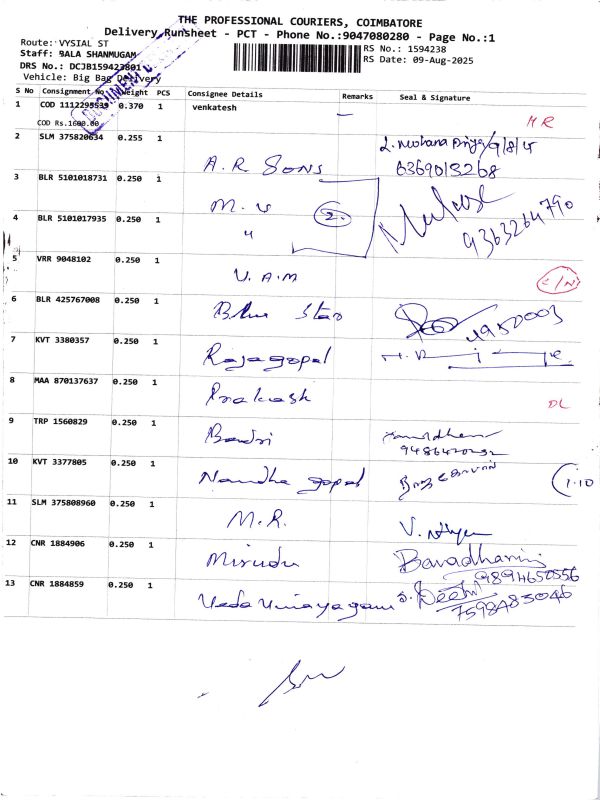 THE PROFESSIONAL COURIERS, COIMBATORE
Delivery Runsheet - PCT - Phone No.:9047080280 - Page No.:1
Route: VYSIAL ST
Staff: BALA SHANMUGAM
DRS No.: DCJB159423801
Vehicle: Big Bag Delivery
RS No.: 1594238
RS Date: 09-Aug-2025
S No Consignment No Weight PCS Consignee Details Remarks Seal & Signature
1 COD 1112295539 0.370 1 venkatesh — MR
COD Rs.1600.00
2 SLM 375820634 0.255 1 A.R SONS 9/8/25
6369013268
3 BLR 5101018731 0.250 1 M. V 2.
4 BLR 5101017935 0.250 1 " 9363264790
5 VRR 9048102 0.250 1 V.A.M C/N
6 BLR 425767008 0.250 1 Blue Star 4952003
7 KVT 3380357 0.250 1 Rajagopal
8 MAA 870137637 0.250 1 Prakash DL
9 TRP 1560829 0.250 1 Badri
10 KVT 3377805 0.250 1 Nandha gopal 1.10
11 SLM 375808960 0.250 1 M.R.
12 CNR 1884906 0.250 1 Mirudu Bavadharini
9894650556
13 CNR 1884859 0.250 1 Veda Vinayagam S. Deepti
7598483046